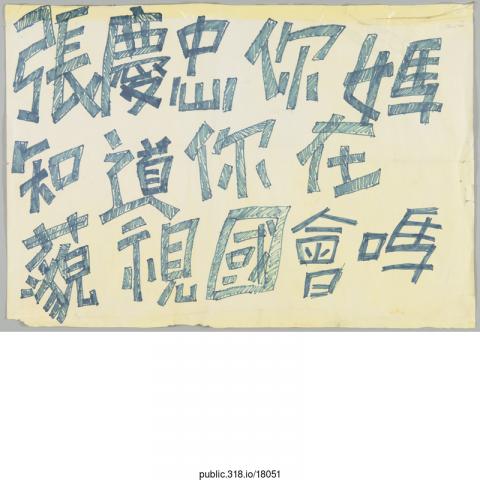 張慶忠你媽
知道你在
藐視國會嗎
public.318.io/18051